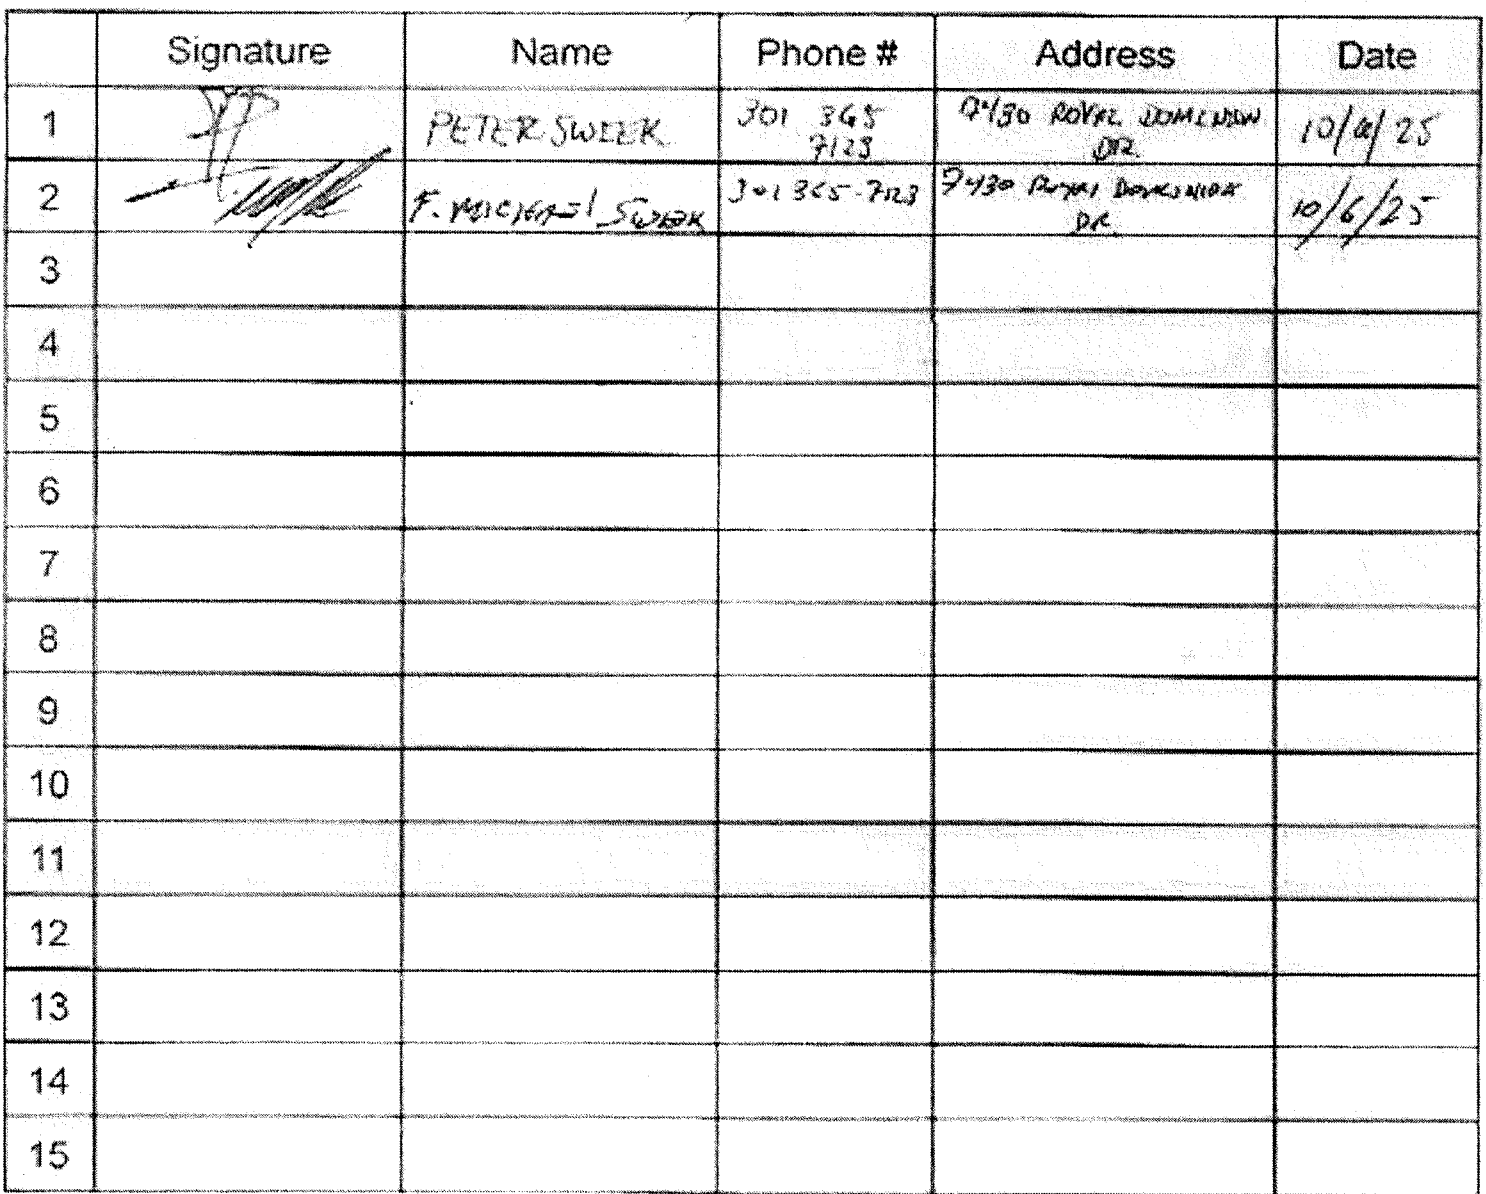 Signature Name Phone # Address Date
1 PETER SWEEK 301 365 7123 7430 ROYAL DOMINION DR. 10/6/25
2 F. MICHAEL SWEEK 301 365-7123 7430 ROYAL DOMINION DR. 10/6/25
3
4
5
6
7
8
9
10
11
12
13
14
15